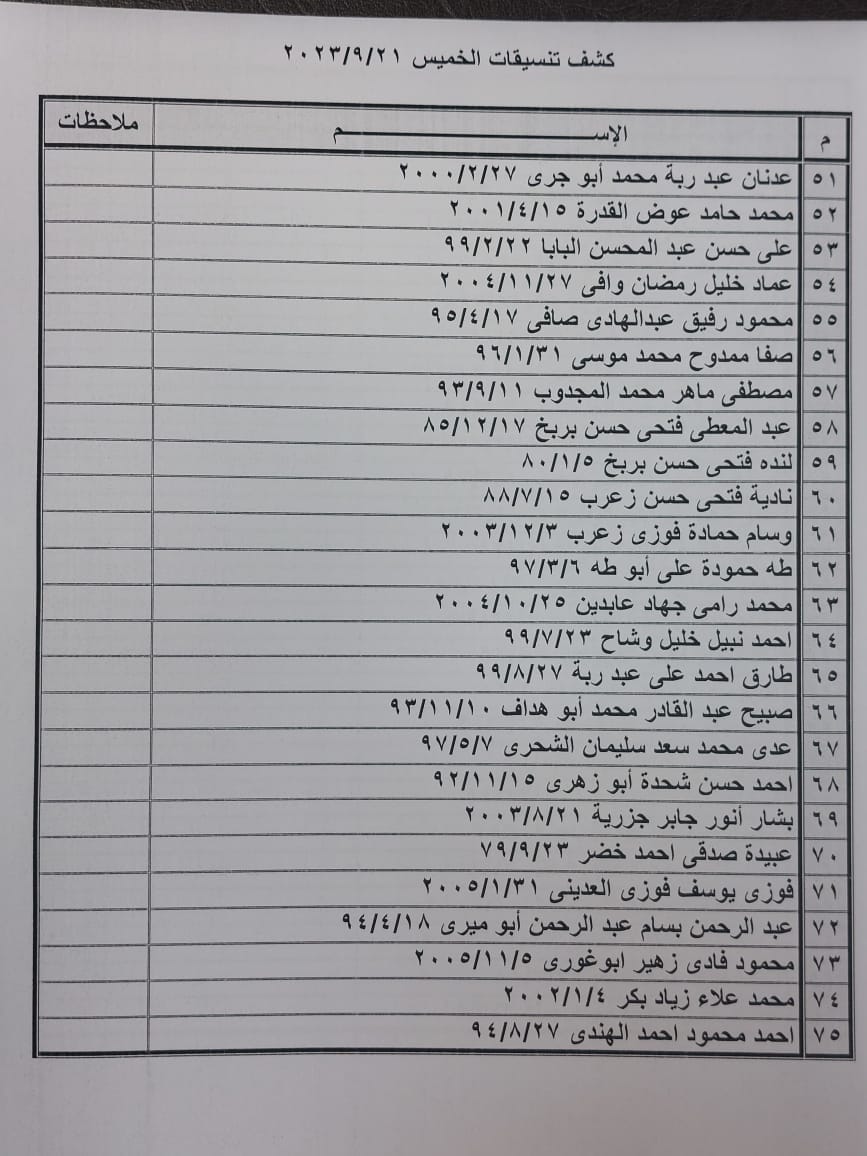 كشف تنسيقات الخميس ٢٠٢٣/٩/٢١
م الإســــــم ملاحظات
٥١ عدنان عبد ربة محمد أبو جرى ٢٠٠٠/٢/٢٧
٥٢ محمد حامد عوض القدرة ٢٠٠١/٤/١٥
٥٣ على حسن عبد المحسن البابا ٩٩/٢/٢٢
٥٤ عماد خليل رمضان وافى ٢٠٠٤/١١/٢٧
٥٥ محمود رفيق عبدالهادى صافى ٩٥/٤/١٧
٥٦ صفا ممدوح محمد موسى ٩٦/١/٣١
٥٧ مصطفى ماهر محمد المجدوب ٩٣/٩/١١
٥٨ عبد المعطى فتحى حسن بربخ ٨٥/١٢/١٧
٥٩ لنده فتحى حسن بربخ ٨٠/١/٥
٦٠ نادية فتحى حسن زعرب ٨٨/٧/١٥
٦١ وسام حمادة فوزى زعرب ٢٠٠٣/١٢/٣
٦٢ طه حمودة على أبو طه ٩٧/٣/٦
٦٣ محمد رامى جهاد عابدين ٢٠٠٤/١٠/٢٥
٦٤ احمد نبيل خليل وشاح ٩٩/٧/٢٣
٦٥ طارق احمد على عبد ربة ٩٩/٨/٢٧
٦٦ صبيح عبد القادر محمد أبو هداف ٩٣/١١/١٠
٦٧ عدى محمد سعد سليمان الشحرى ٩٧/٥/٧
٦٨ احمد حسن شحدة أبو زهرى ٩٢/١١/١٥
٦٩ بشار أنور جابر جزرية ٢٠٠٣/٨/٢١
٧٠ عبيدة صدقى احمد خضر ٧٩/٩/٢٣
٧١ فوزى يوسف فوزى العدينى ٢٠٠٥/١/٣١
٧٢ عبد الرحمن بسام عبد الرحمن أبو ميرى ٩٤/٤/١٨
٧٣ محمود فادى زهير ابوغورى ٢٠٠٥/١١/٥
٧٤ محمد علاء زياد بكر ٢٠٠٢/١/٤
٧٥ احمد محمود احمد الهندى ٩٤/٨/٢٧